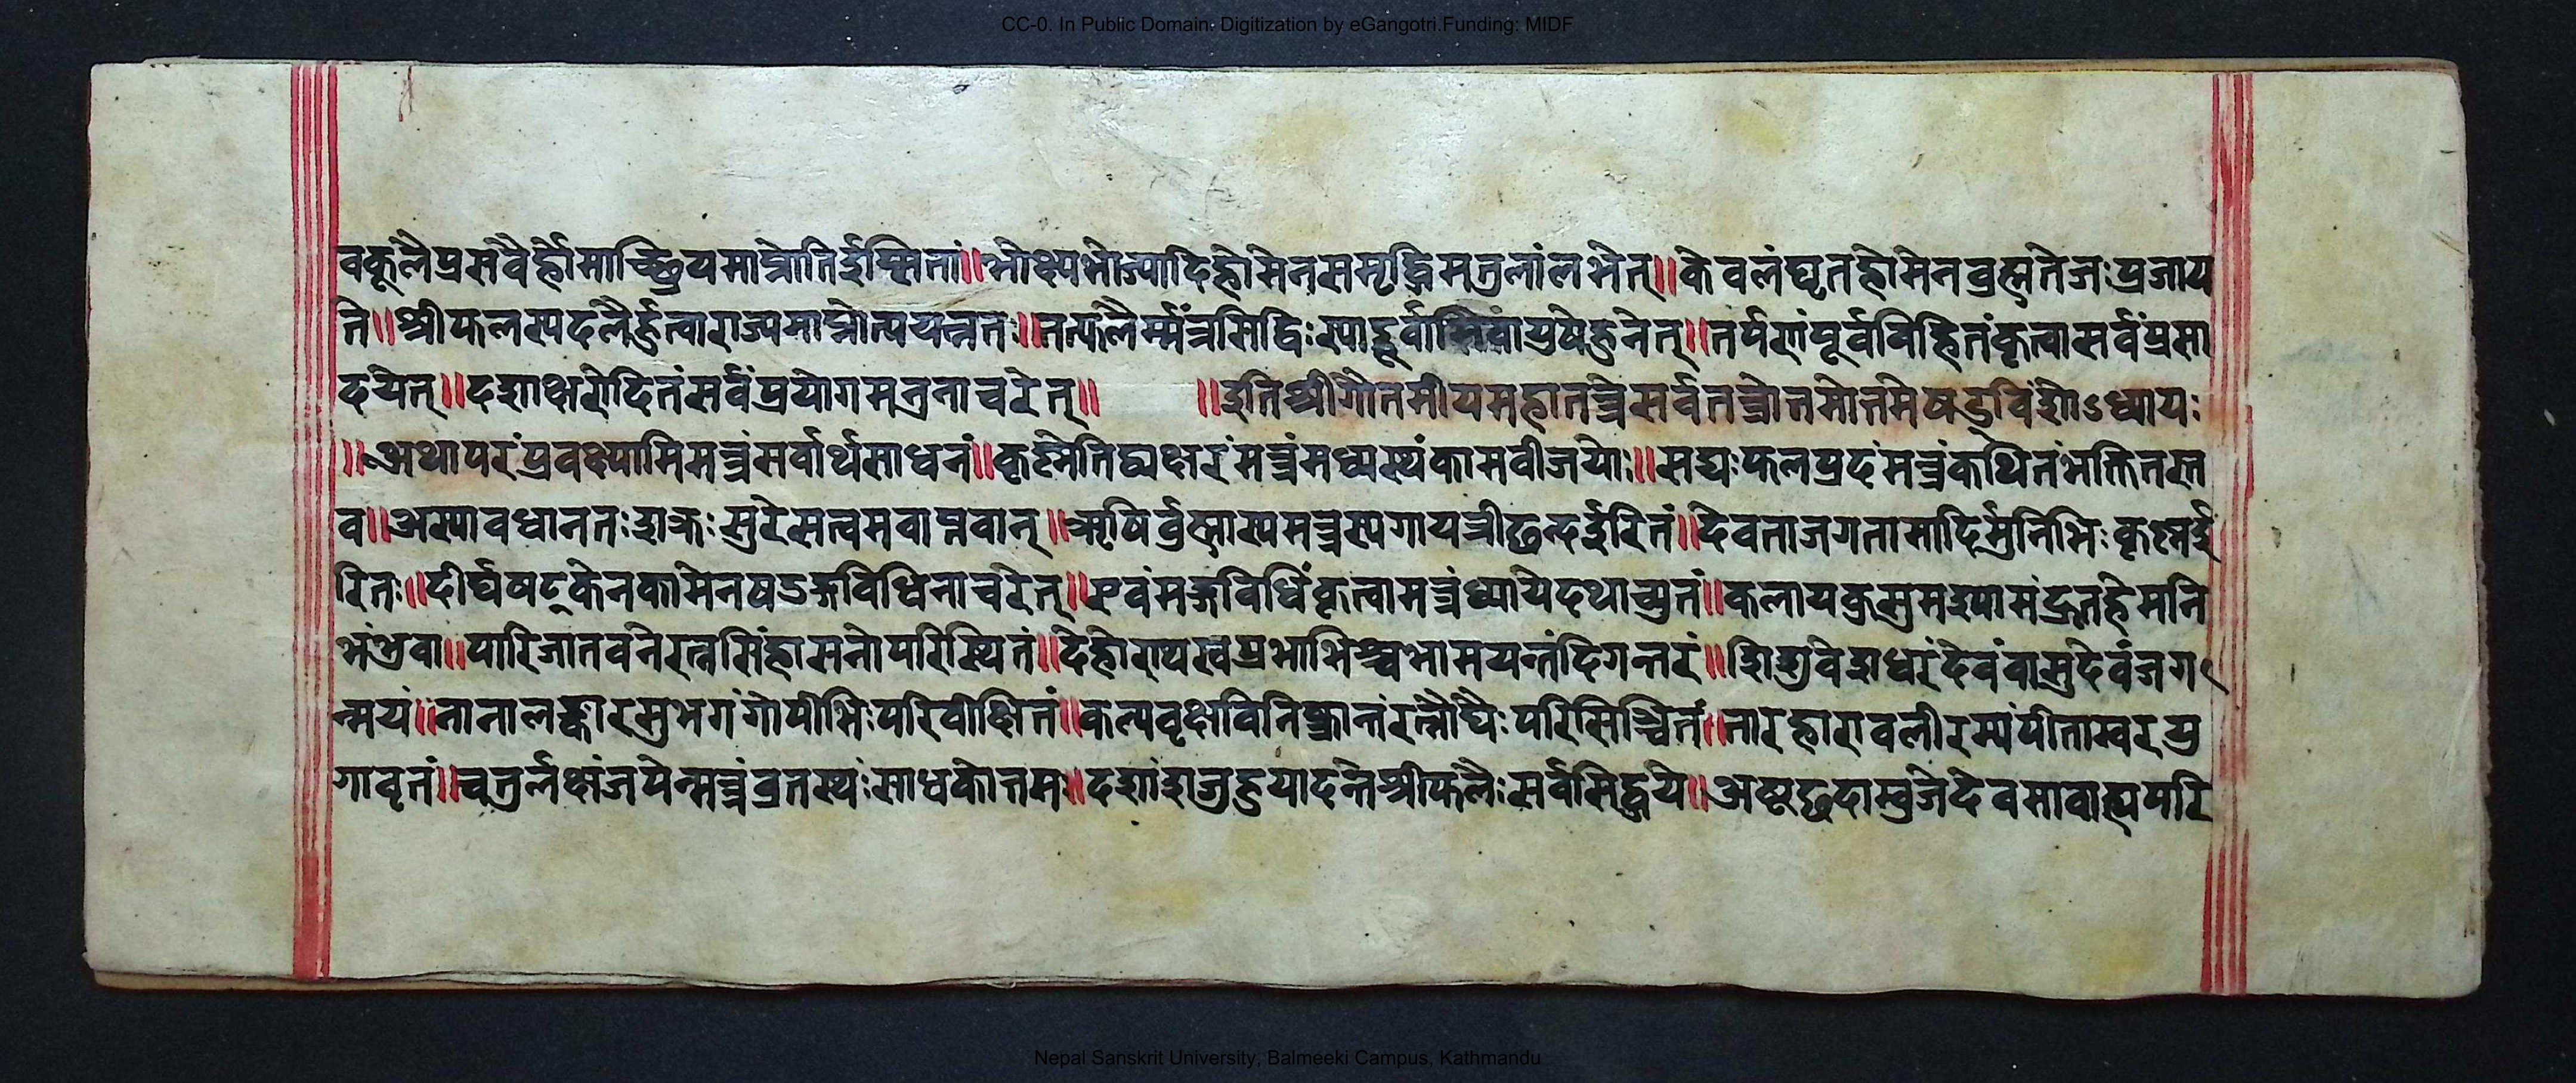 CC-0. In Public Domain. Digitization by eGangotri.Funding: MIDF
वकूलैप्रसवैर्होमाच्छ्रियमाप्नोतिर्इप्सितां॥भोक्ष्यभोज्यादिहोमेनसमृद्धिमतुलांलभेत्॥केवलंघृतहोमेनव्रह्मतेजःप्रजाय
ते॥श्रीफलस्यदलैर्हुत्वाराज्यमाप्नोत्ययत्नतः॥तत्फलैर्म्मंत्रसिद्धिःस्याद्दूर्वाभिवायुषेहुनेत्॥तर्पणंपूर्वविहितंकृत्वासर्वंप्रसा
दयेत्॥दशाक्षरोदितंसर्वंप्रयोगमत्रनाचरेत्॥ ॥इतिश्रीगौतमीयमहातन्त्रेसर्वतन्त्रोत्तमोत्तमेषड्विंशोऽध्यायः
॥अथापरंप्रवक्ष्यामिमन्त्रंसर्वार्थसाधनं॥कृष्णेतिद्व्यक्षरंमन्त्रंमध्यस्थंकामवीजयोः॥सद्यःफलप्रदंमन्त्रंकथितंभक्तितस्त
व॥अस्यावधानतःशक्रःसुरेसत्वमवाप्नवान्॥ऋषिर्व्रह्मास्यमन्त्रस्यगायत्रीछन्दर्इरितं॥देवताजगतामादिर्मुनिभिःकृष्णर्इ
रितः॥दीर्घषट्केनकामेनषडङ्गविधिनाचरेत्॥एवंमङ्गविधिंकृत्वामन्त्रंध्यायेदथाच्युतं॥कलायकुसुमश्यामंद्रुतहेमनि
भंभुवा॥पारिजातवनेरत्नसिंहासनोपरिस्थितं॥देहोराप्यस्वप्रभाभिश्चभामयन्तंदिगन्तरं॥शिशुवेशधरंदेवंवासुदेवंजग
न्मयं॥नानालङ्कारसुभगंगोपीभिःपरिवीक्षितं॥कल्पवृक्षविनिष्क्रान्तंरत्नौघैःपरिसिञ्चितं॥नारहारावलीरम्यंपीताम्बरयु
गावृतं॥चतुर्लक्षंजपेन्मन्त्रंव्रतस्थंःसाधकोत्तम॥दशांशंजुहुयादन्तेश्रीफलैःसर्वसिद्धये॥अष्टछदाम्बुजेदेवमावाह्यपरि
Nepal Sanskrit University, Balmeeki Campus, Kathmandu